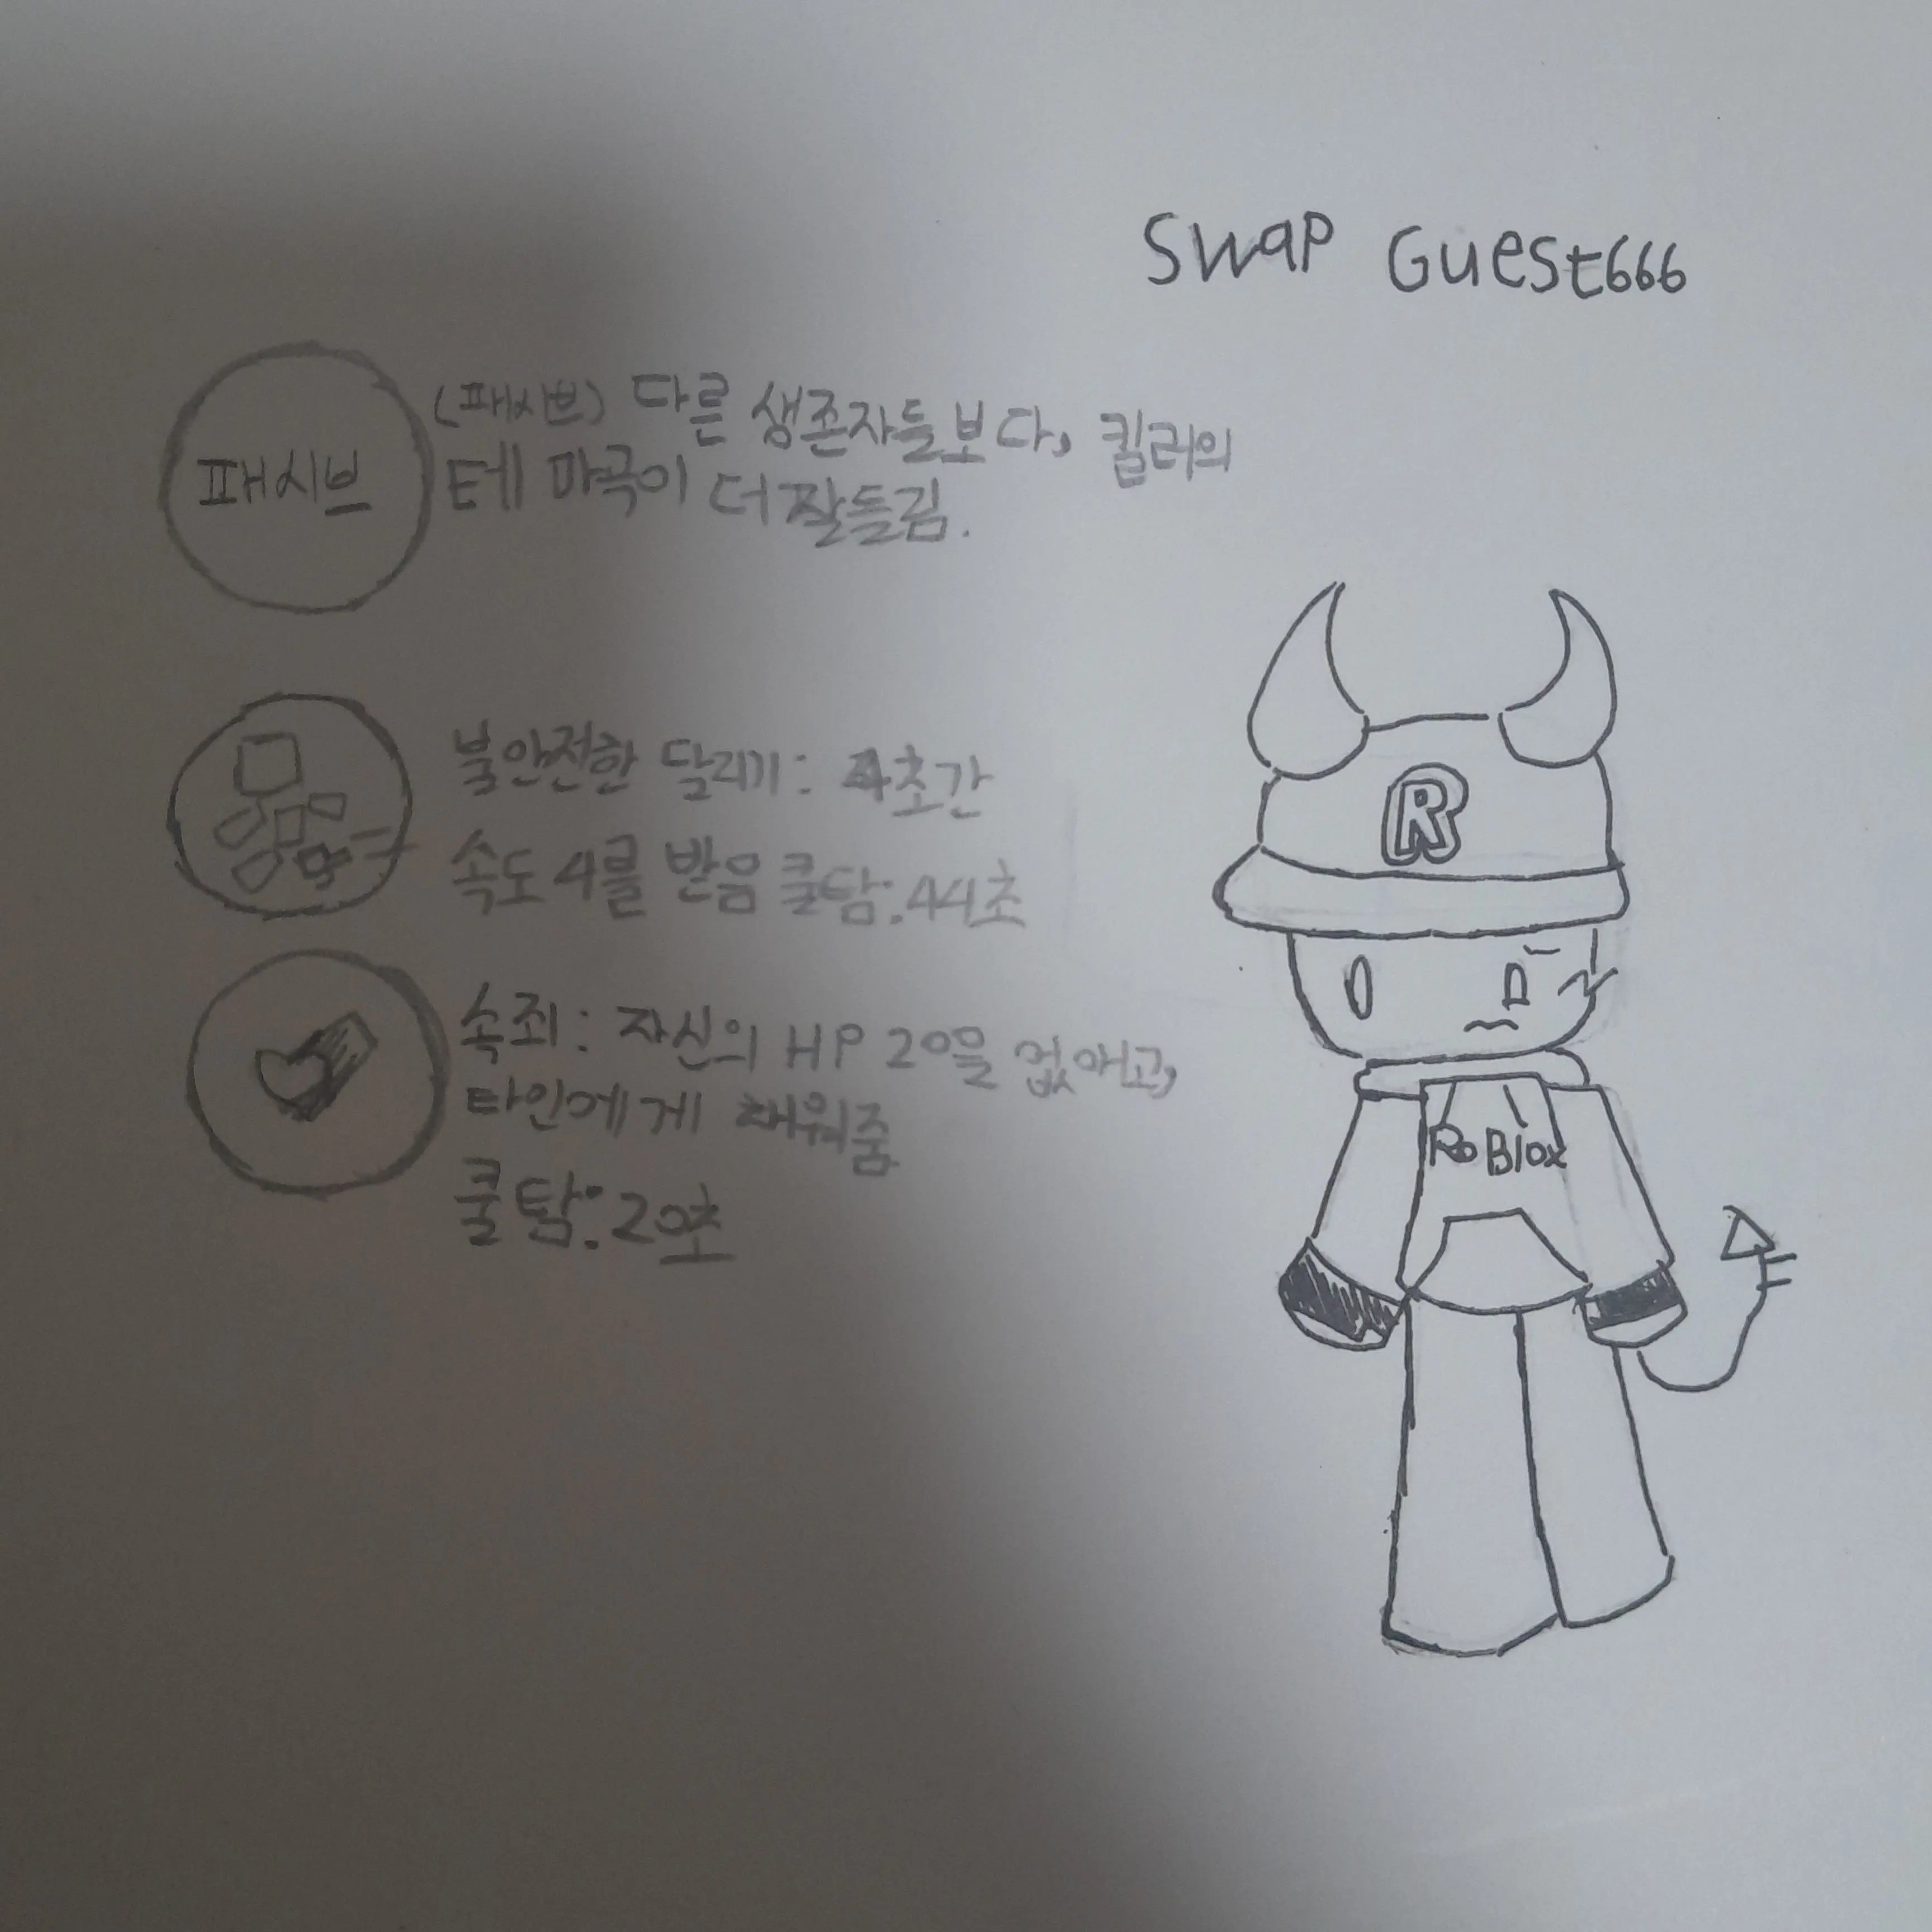 Swap Guest666
패시브
(패시브) 다른 생존자들보다, 킬러의
테마곡이 더 잘들림.
불안전한 달리기: 4초간
속도 4를 받음 쿨탐:44초
속죄: 자신의 HP 20을 없애고,
타인에게 채워줌
쿨탐:20초
R
RoBlox